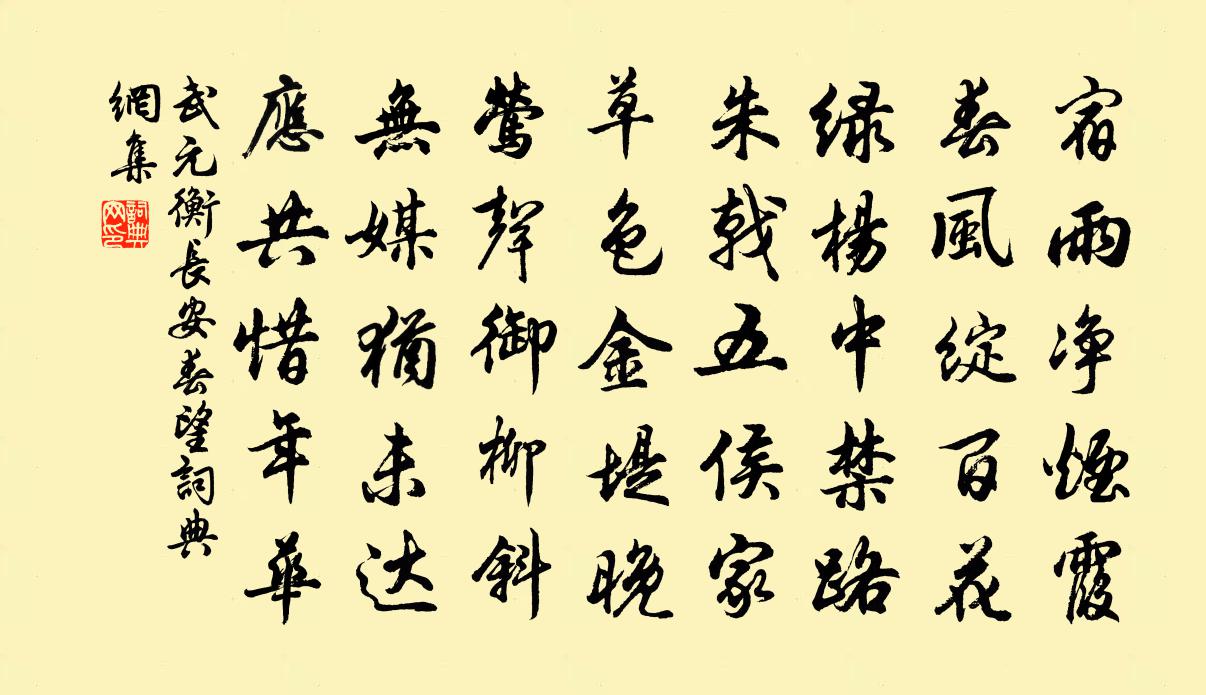 宿雨净煙霞
春風綻百花
绿楊中禁路
朱戟五侯家
草色金堤晚
鶯聲御柳斜
無媒猶未达
應共惜年華
武元衡長安春望詞典
網集
詞典
网印